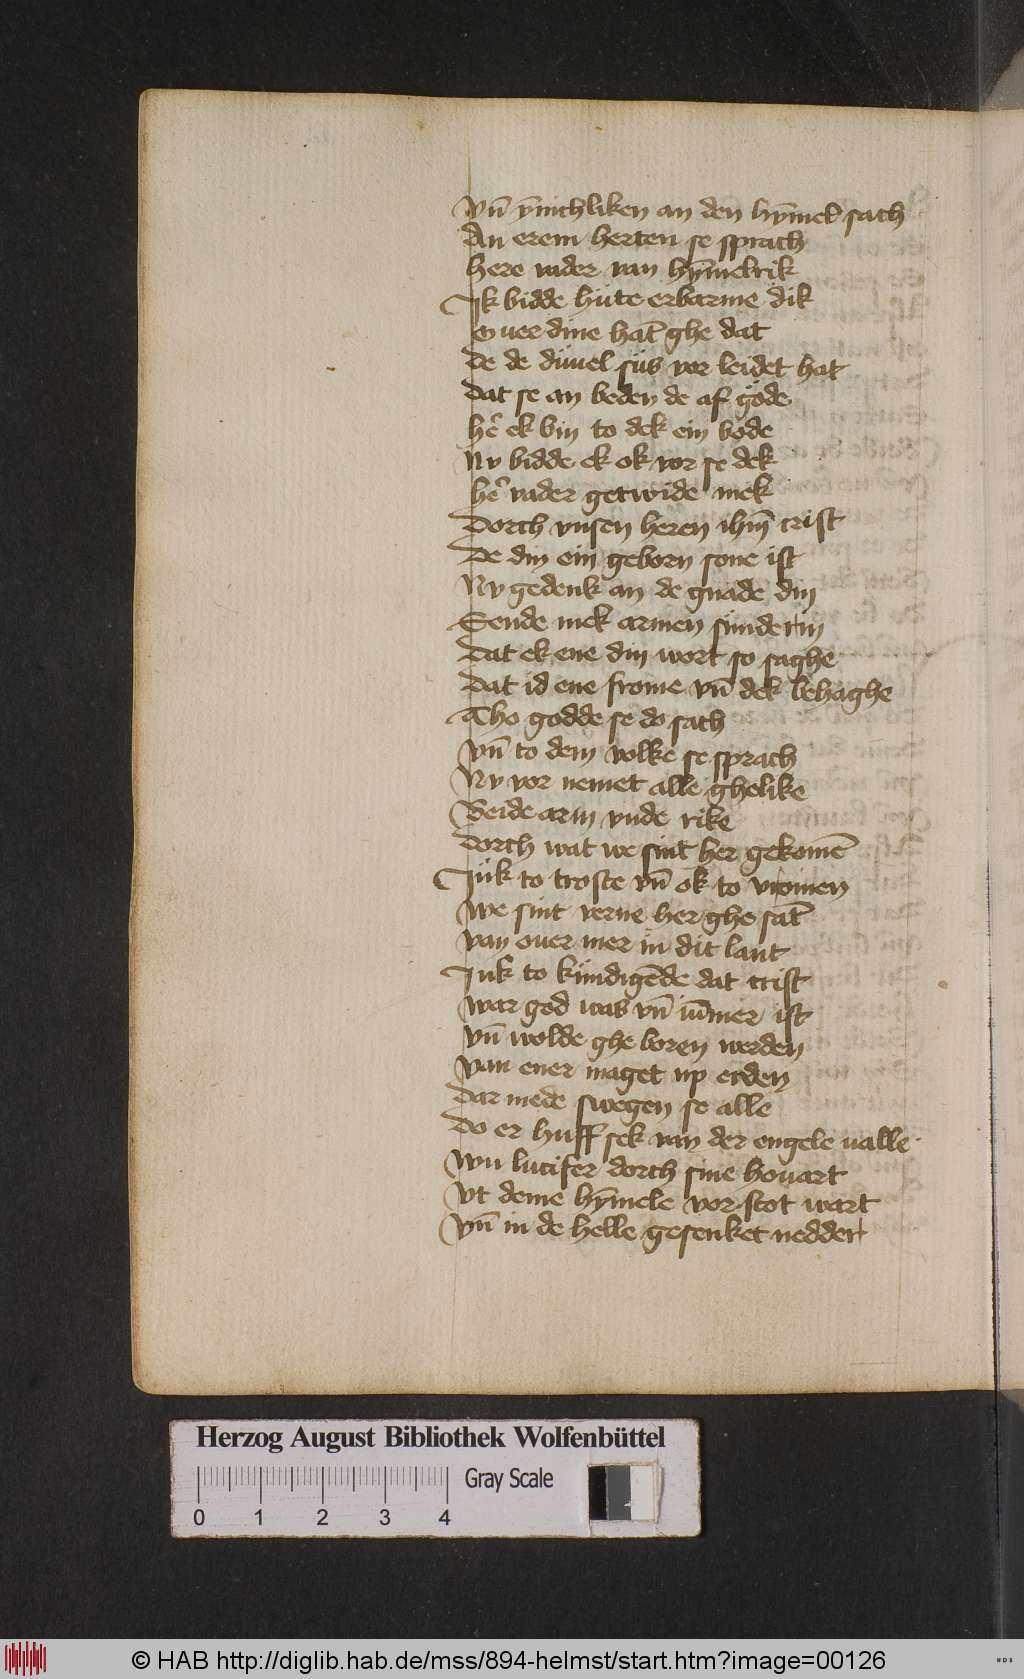 vn̄ ȳnichliken an den hȳmel sach
An erem herten se sprach
here vader van hȳmelrik
Ik bidde hute erbarme dik
Ouer dine hāt ghe dat
de de duuel sus vor leidet hat
dat se an beden de af gode
hē ek bin to dek ein bode
Nv bidde ek ok vor se dek
hē vader getwide mek
dorch vnsen heren ihm̄ crist
de din ein geborn sone ist
Nv gedenk an de gnade din
Sende mek armen sunderin
dat ek ene din wort so saghe
dat id ene frome vn̄ dek behaghe
Tho godde se do sach
vn̄ to dem volke se sprach
Nv vor nemet alle ghelike
Beide arm vnde rike
dorch wat we sint her gekomē
Iuk to troste vn̄ ok to vromen
we sint verne her ghe sāt
van ouer mer in dit lant
Iuk to kundigēde dat crist
war god was vn̄ iūmer ist
vn̄ wolde ghe boren werden
van ener maget up erden
dar mede swegen se alle
do er huff sek van der engele ualle
wu lucifer dorch sine houart
vt deme hȳmele vor stot wart
vn̄ in de helle gesenket nedder
Herzog August Bibliothek Wolfenbüttel
Gray Scale
0 1 2 3 4
© HAB http://diglib.hab.de/mss/894-helmst/start.htm?image=00126